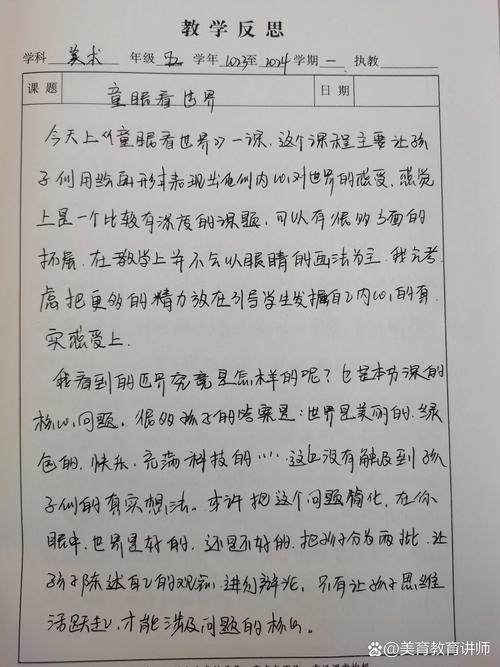 教学反思
学科 美术 年级 五 学年 2023至2024学期 一 执教
课题 童眼看世界 日期
今天上《童眼看世界》一课，这个课程主要让孩
子们用绘画形式表现出他们内心对世界的感受，感觉
上是一个比较有深度的课题，可以有很多方面的
拓展。在教学上并不会以眼睛的画法为主，我会考
虑把更多的精力放在引导学生发掘自己内心的真
实感受上.
我看到的世界究竟是怎样的呢？也是本节课的
核心问题。很多孩子的答案是：世界是美丽的、绿
色的、快乐、充满科技的……这并没有触及到孩
子们的真实想法。或许把这个问题简化，在你
眼中，世界是好的，还是不好的，把孩子分为两批，让
孩子陈述自己的观点，进行辩论，只有让孩子思维
活跃起，才能涉及问题的核心。
@美育教育讲师